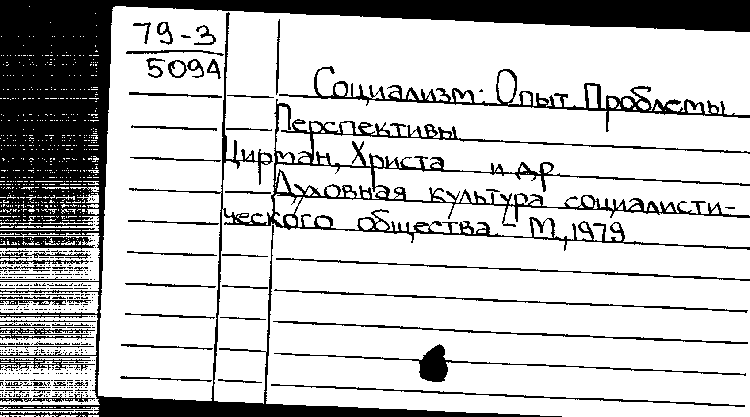 79-3
5094
Социализм: Опыт. Проблемы
Перспективы
Цирман, Христа и др
Духовная культура социалисти-
ческого общества.- М, 1979